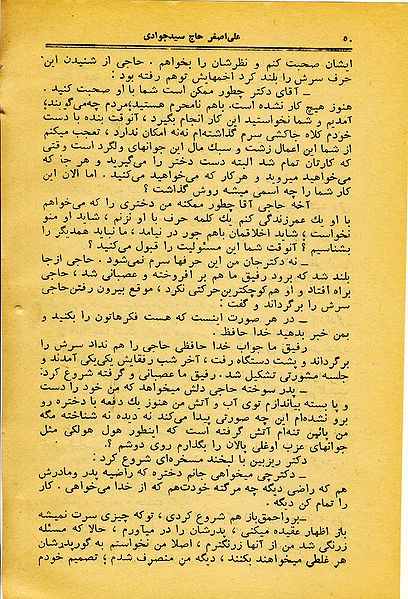 ۵۰
علی‌اصغر حاج سیدجوادی
ایشان صحبت کنم و نظرشان را بخواهم . حاجی از شنیدن این
حرف سرش را بلند کرد اخمهایش توهم رفته بود :
ــ آقای دکتر چطور ممکن است شما با او صحبت کنید .
هنوز هیچ کار نشده است. باهم نامحرم هستید؛ مردم چه‌می‌گویند؛
آمدیم و شما نخواستید این کار انجام بگیرد ، آنوقت بنده با دست
خودم کلاه خاکشی سرم گذاشته‌ام نه‌نه امکان ندارد ، تعجب میکنم
از شما این اعمال زشت و سبك مال این جوانهای ولگرد است وقتی
که کارتان تمام شد البته دست دختر را می‌گیرید و هر جا که
می‌خواهید میروید و هرکار که می‌خواهید می‌کنید . اما الان این
کار شما را چه اسمی میشه روش گذاشت ؟
آخه حاجی آقا چطور ممکنه من دختری را که می‌خواهم
با او یك عمر زندگی کنم یك کلمه حرف با او نزنم ، شاید او منو
نخواست ، شاید اخلاقمان باهم جور در نیامد ، ما نباید همدیگر را
بشناسیم ؟ آنوقت شما این مسئولیت را قبول می‌کنید ؟
ــ نه دکترجان من این حرفها سرم نمی‌شود . حاجی ازجا
بلند شد که برود رفیق ما هم بر افروخته و عصبانی شد ، حاجی
براه افتاد و او هم کوچکترین‌حرکتی نکرد ، موقع بیرون رفتن‌حاجی
سرش را برگرداند و گفت :
ــ در هر صورت اینست که هست فکرهاتون را بکنید و
بمن خبر بدهید خدا حافظ .
رفیق ما جواب خدا حافظی حاجی را هم نداد سرش را
برگرداند و پشت دستگاه رفت ، آخر شب رفقایش یکی‌یکی آمدند و
جلسه مشورتی تشکیل شد . رفیق ما عصبانی و گرفته شروع کرد:
ــ پدر سوخته حاجی دلش میخواهد که من خود را دست
و پا بسته بیاندازم توی آب و آتش من هنوز یك دفعه با دختره رو
برو نشده‌ام این چه صورتی پیدا می‌کند نه دیده نه شناخته مگه
من پائین تنه‌ام آتش گرفته است که اینطور هول هولکی مثل
جوانهای عزب اوغلی پالان را بگذارم روی دوشم ؟
دکتر ریزبین با لبخند مسخره‌ای شروع کرد :
ــ دکترچی میخواهی جانم دختره که راضیه پدر ومادرش
هم که راضی دیگه چه مرگته خودت‌هم که از خدا می‌خواهی . کار
را تمام کن دیگه .
ــ برواحمق‌باز هم شروع کردی ، توکه چیزی سرت نمیشه
باز اظهار عقیده میکنی ، پدرشان را درمیاورم ، حالا که مسئله
زرنگی شد من از آنها زرنگترم ، اصلا من نخواستم به گورپدرشان
هر غلطی میخواهند بکنند ، دیگه من منصرف شدم ؛ تصمیم خودم